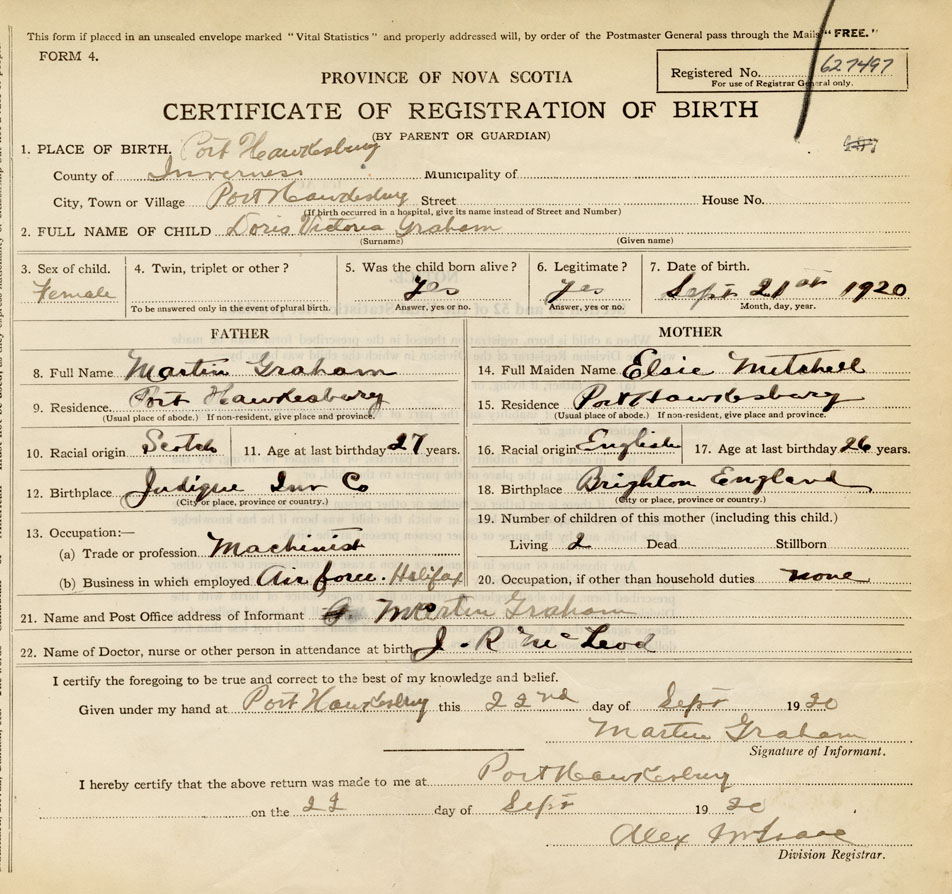 This form if placed in an unsealed envelope marked "Vital Statistics" and properly addressed will, by order of the Postmaster General pass through the Mails "FREE."
FORM 4.
Registered No. 627497
For use of Registrar General only.
PROVINCE OF NOVA SCOTIA
CERTIFICATE OF REGISTRATION OF BIRTH
(BY PARENT OR GUARDIAN)
1. PLACE OF BIRTH. Port Hawkesbury
County of Inverness Municipality of
City, Town or Village Port Hawkesbury Street House No.
(If birth occurred in a hospital, give its name instead of Street and Number)
2. FULL NAME OF CHILD Doris Victoria Graham
(Surname) (Given name)
3. Sex of child. 4. Twin, triplet or other? 5. Was the child born alive? 6. Legitimate? 7. Date of birth.
Female yes yes Sept 21st 1920
To be answered only in the event of plural birth. Answer, yes or no. Answer, yes or no. Month, day, year.
FATHER
8. Full Name Martin Graham
9. Residence Port Hawkesbury
(Usual place of abode.) If non-resident, give place and province.
10. Racial origin Scotch 11. Age at last birthday 27 years.
12. Birthplace Judique Inv Co
(City or place, province or country.)
13. Occupation:—
(a) Trade or profession Machinist
(b) Business in which employed Air force. Halifax
MOTHER
14. Full Maiden Name Elsie Mitchell
15. Residence Port Hawkesbury
(Usual place of abode.) If non-resident, give place and province.
16. Racial origin English 17. Age at last birthday 26 years.
18. Birthplace Brighton England
(City or place, province or country.)
19. Number of children of this mother (including this child.)
Living 2 Dead Stillborn
20. Occupation, if other than household duties none
21. Name and Post Office address of Informant Martin Graham
22. Name of Doctor, nurse or other person in attendance at birth J. R Mc Leod
I certify the foregoing to be true and correct to the best of my knowledge and belief.
Given under my hand at Port Hawkesbury this 22nd day of Sept 1920
Martin Graham
Signature of Informant.
I hereby certify that the above return was made to me at Port Hawkesbury
on the 22 day of Sept 1920
Alex McIsaac
Division Registrar.